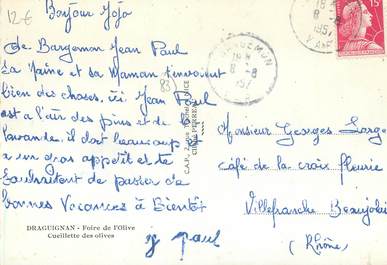 12€
Bonjour Jojo
de Bargemon Jean Paul
La Jaine et sa Maman t'envoient
bien des choses, ici Jean Paul
est a l'air des pins et de la
lavande, il doit beaucoup, il
a un gros appetit et te
souhaitent de passer de
bonnes Vacances à Bientôt
J Paul
DRAGUIGNAN - Foire de l'Olive
Cueillette des olives
83
BARGEMON
18 H
8 - 8
1957
VAR
15F
Monsieur Georges Large
café de la croix fleurie
Villefranche Beaujolais
(Rhône)